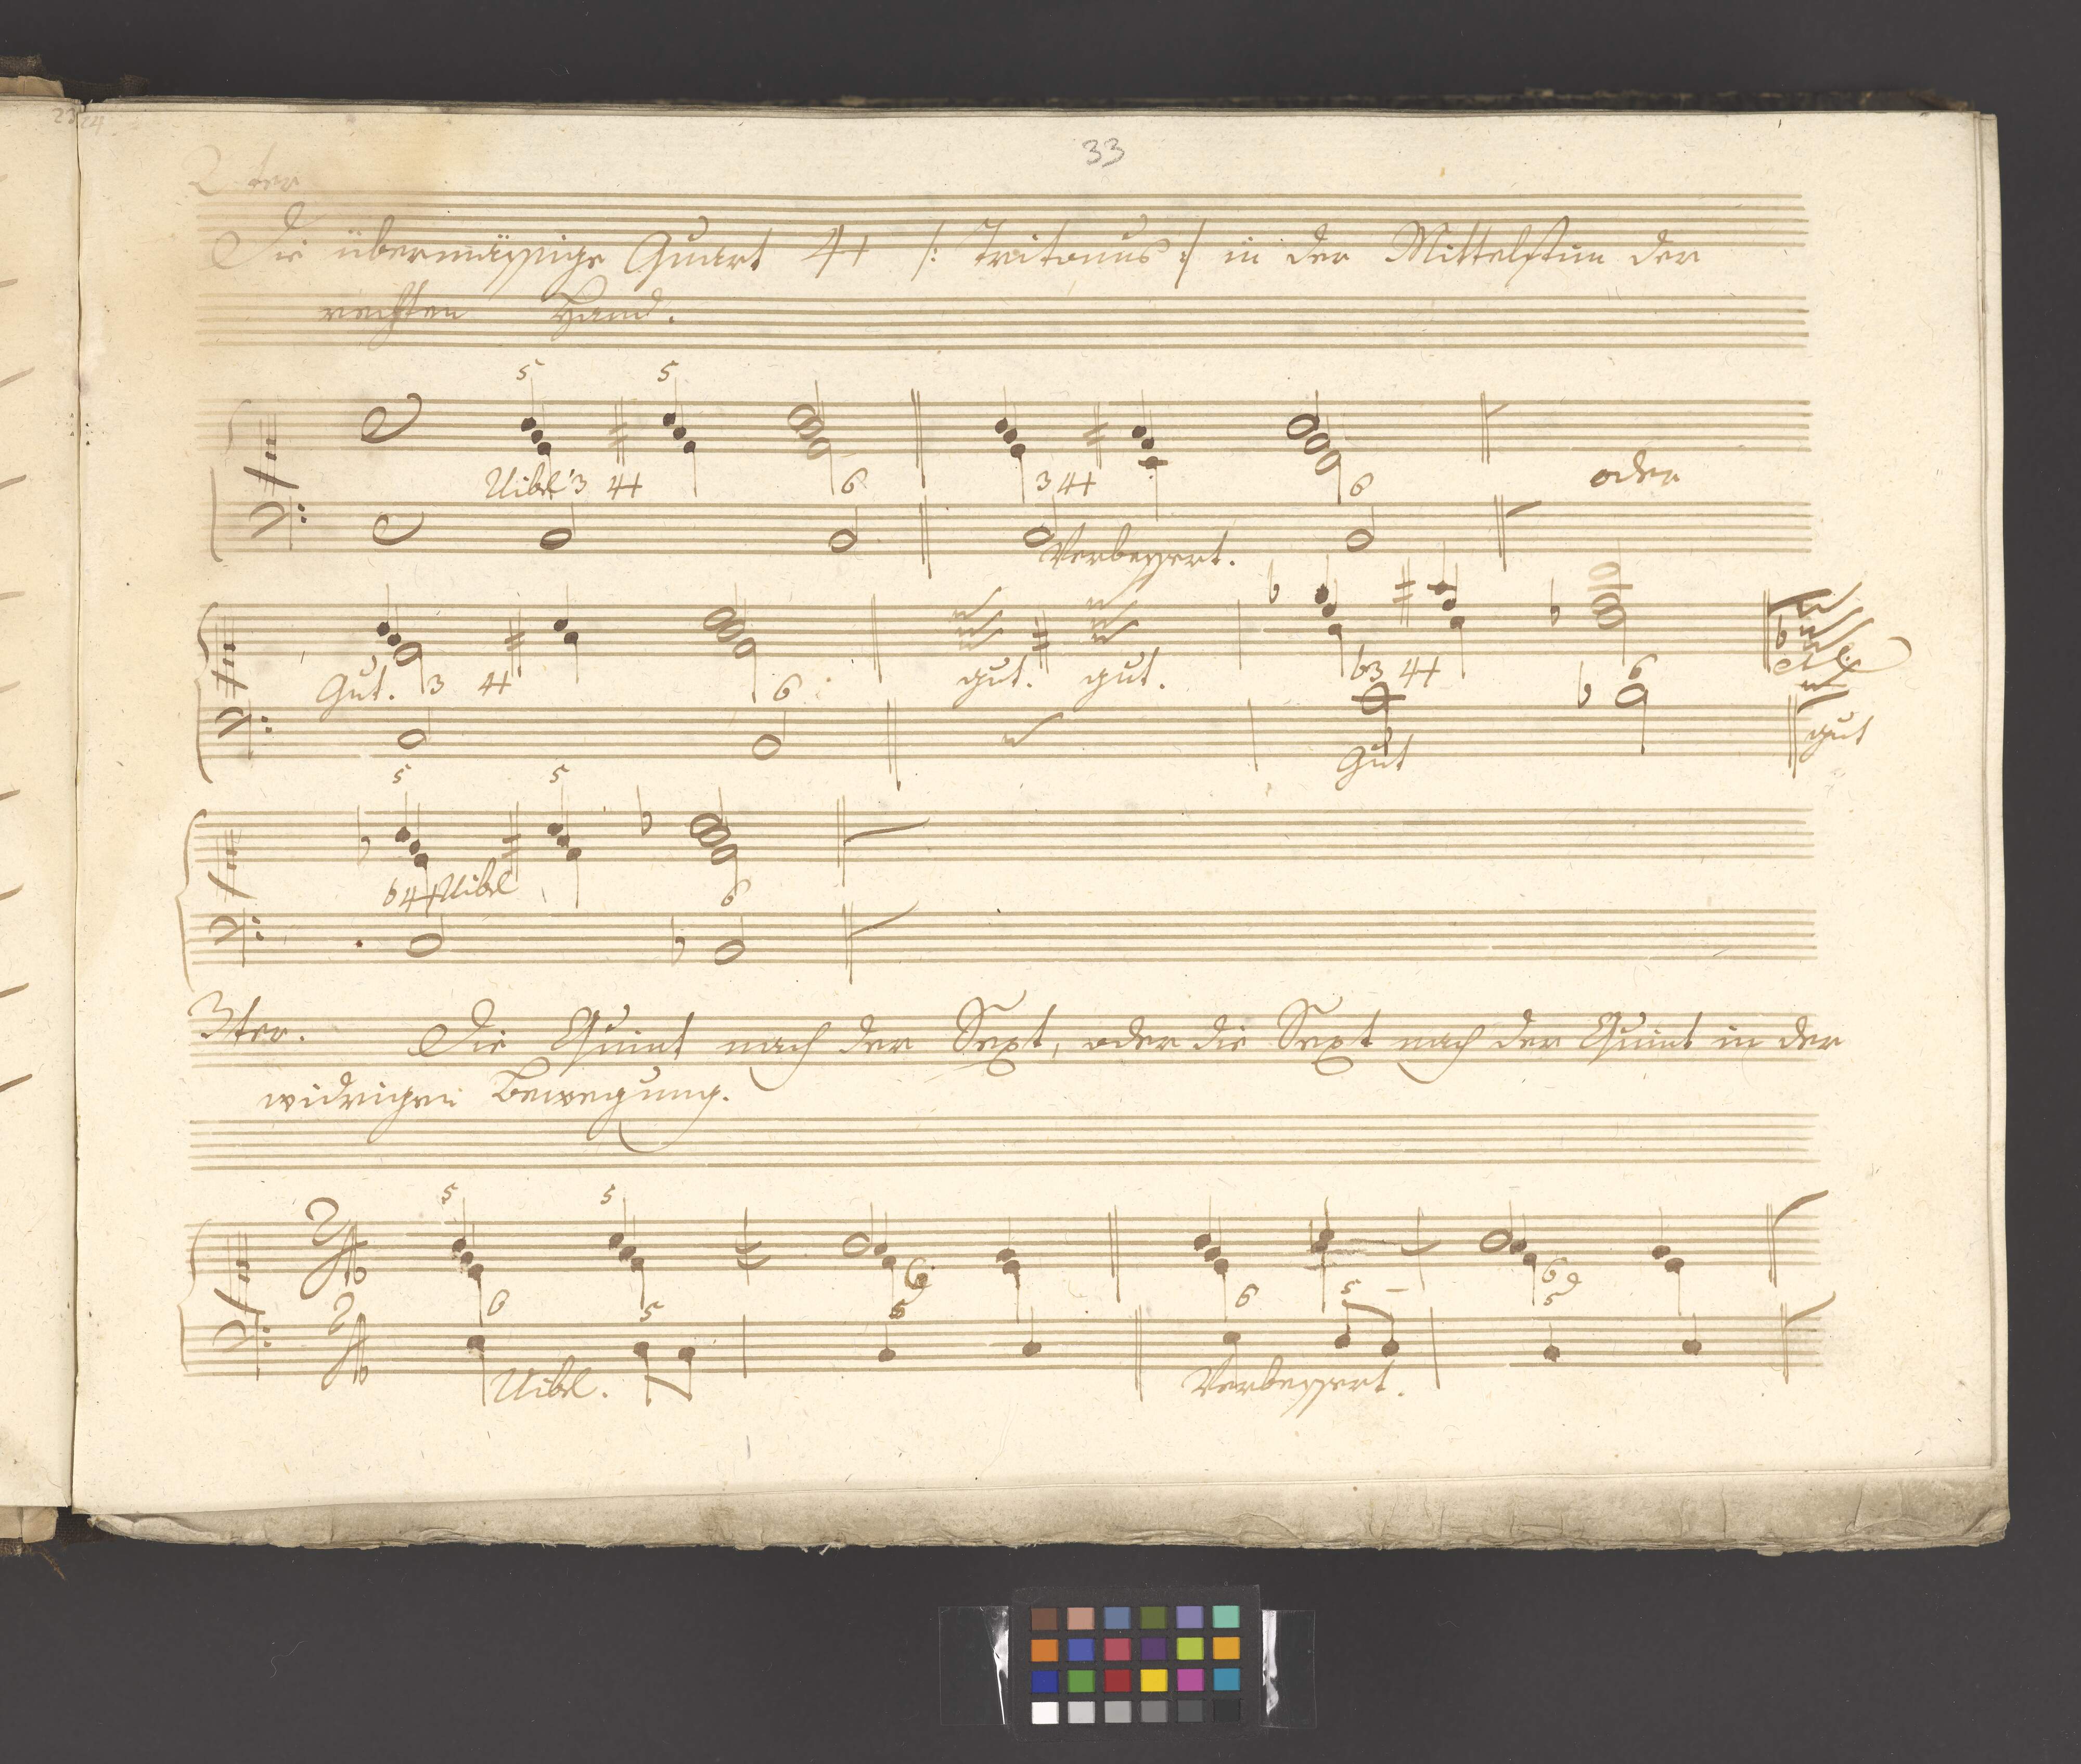 23 24
33
2ter
Die übermässige Quart 4+ /: Tritonus :/ in der Mittelstim der
rechten Hand.
5 5
Uibel 3 4+ 6 3 4+ 6 oder
Verbessert.
Gut. 3 4+ 6 gut. gut. b3 4+ 6
Gut gut
5 5
b4+ Uibel 6
3ter. Die Quint nach der Sext, oder die Sext nach der Quint in der
widrigen Bewegung.
5 5
6 5 6 5 6 5 – 6 5
Uibel. Verbessert.